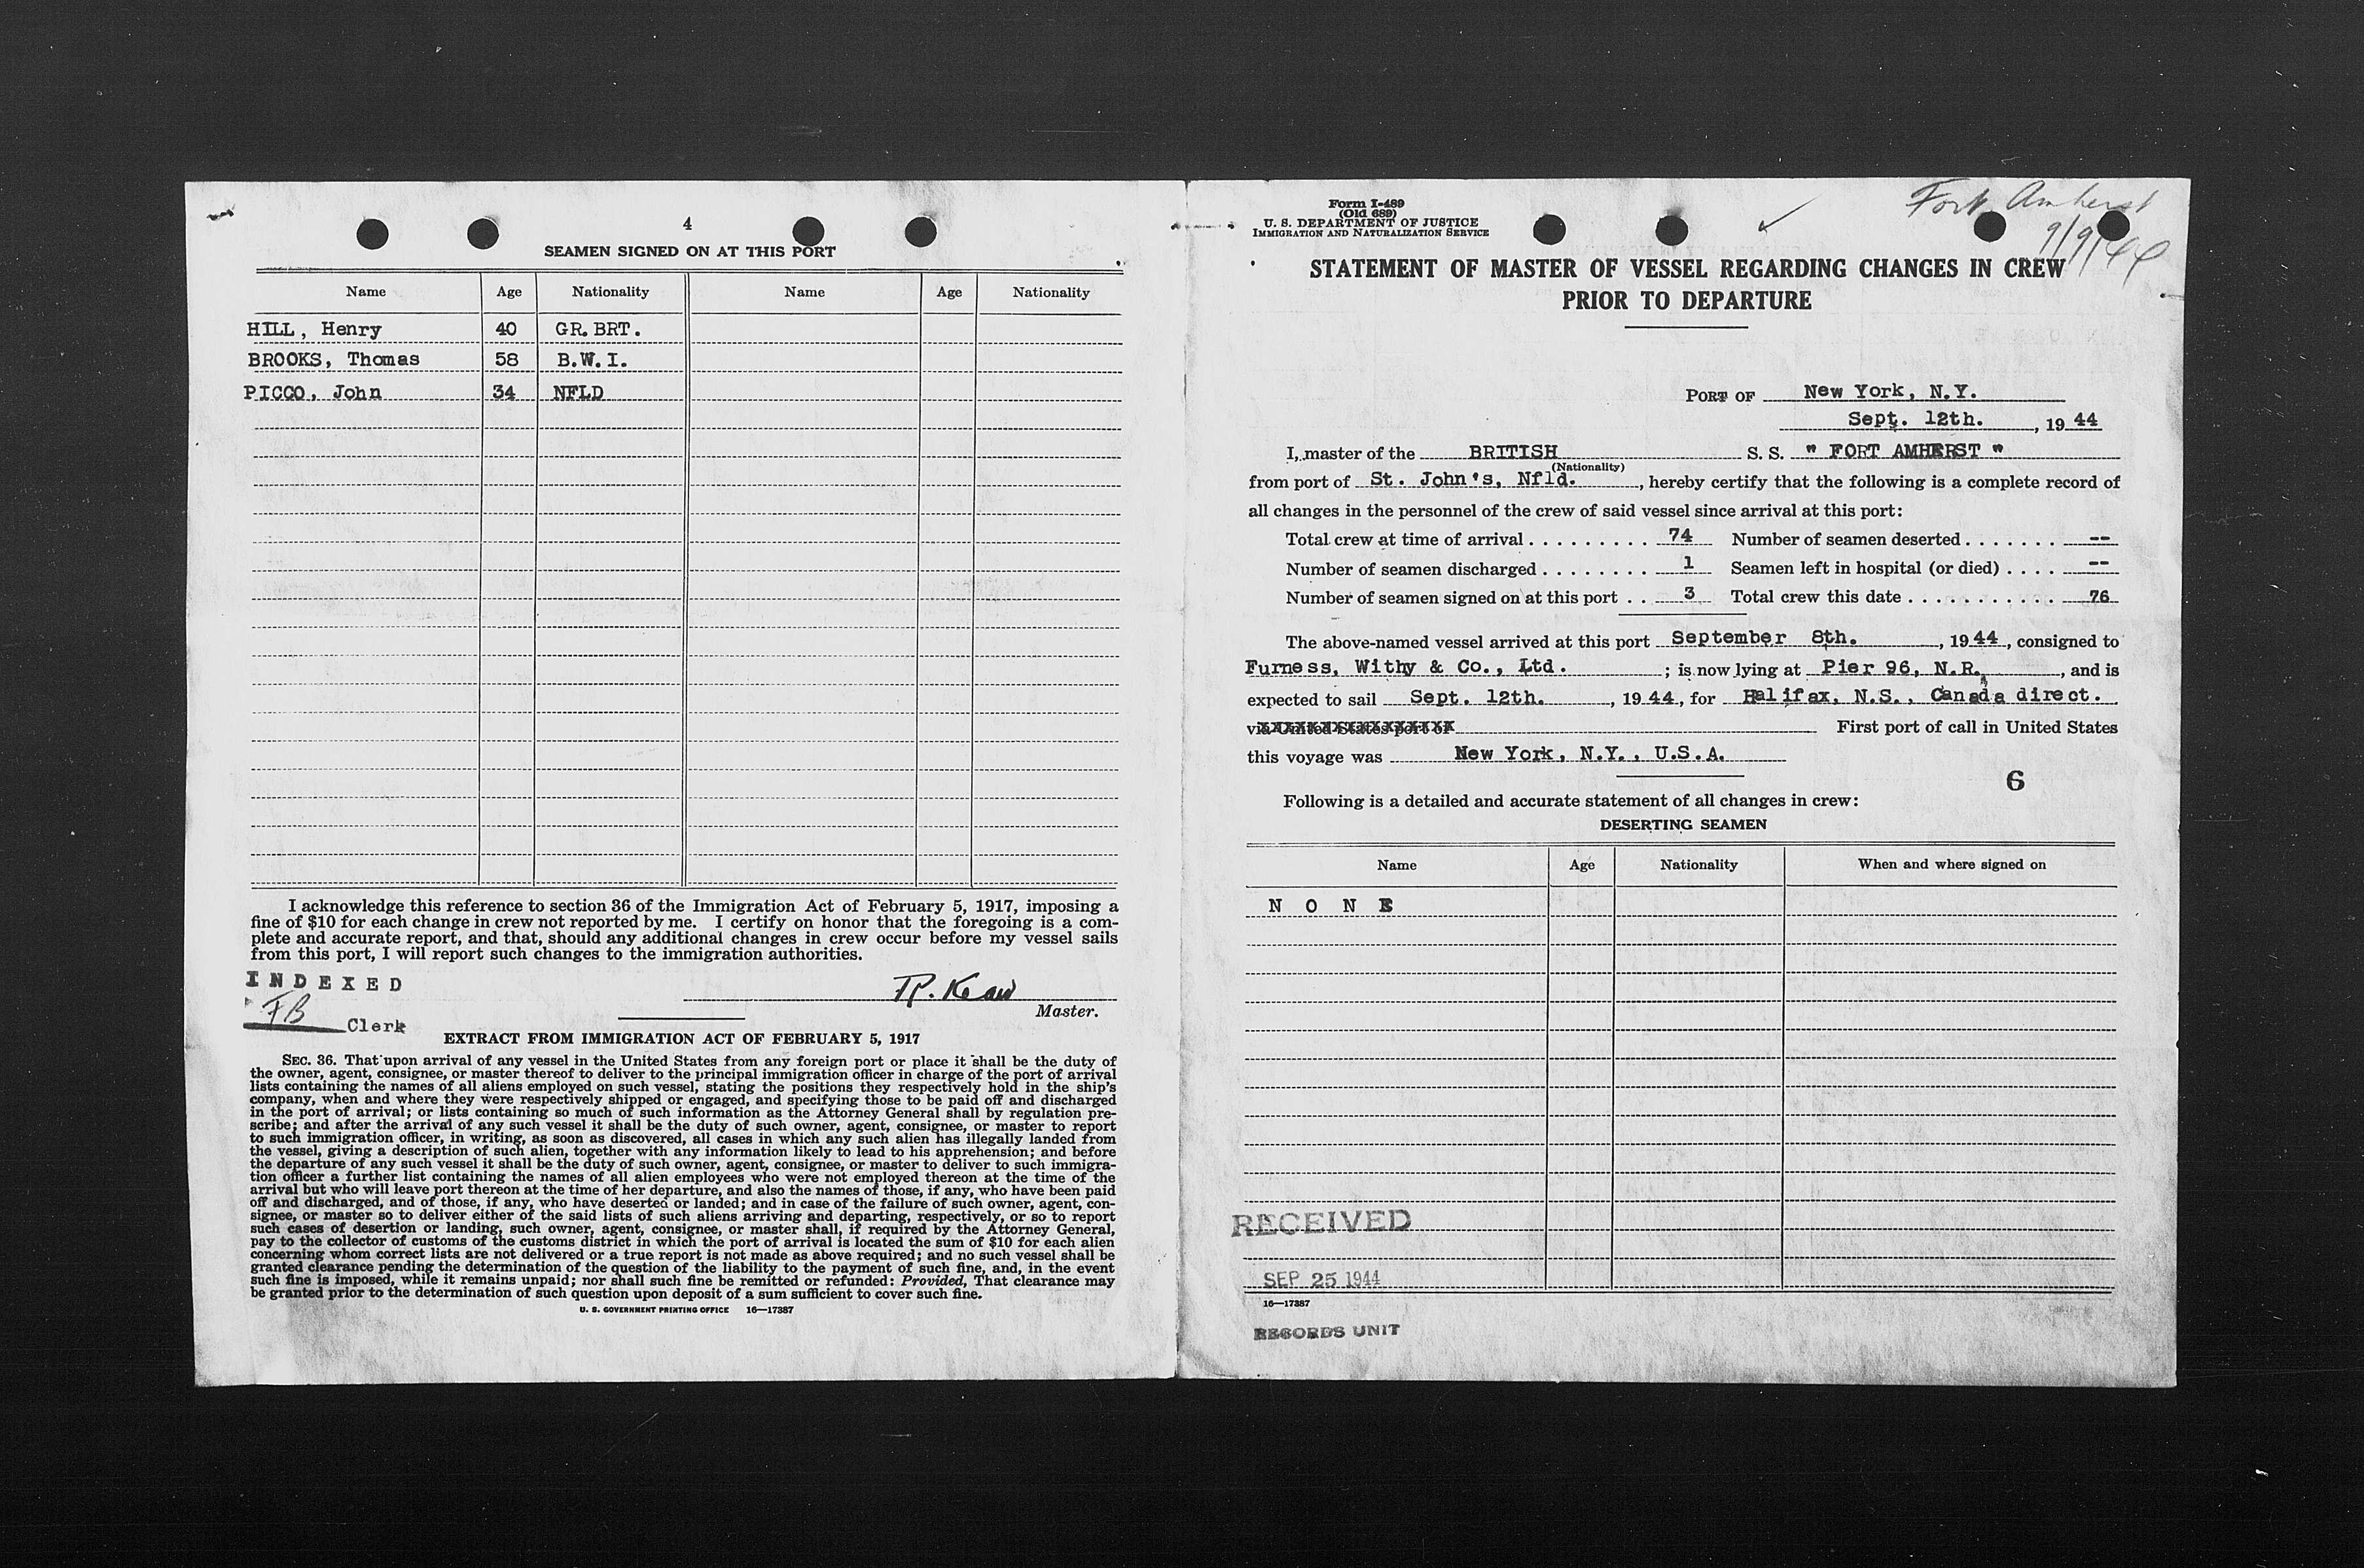 4
SEAMEN SIGNED ON AT THIS PORT
Name Age Nationality Name Age Nationality
HILL, Henry 40 GR.BRT.
BROOKS, Thomas 58 B.W.I.
PICCO, John 34 NFLD
I acknowledge this reference to section 36 of the Immigration Act of February 5, 1917, imposing a
fine of $10 for each change in crew not reported by me. I certify on honor that the foregoing is a com-
plete and accurate report, and that, should any additional changes in crew occur before my vessel sails
from this port, I will report such changes to the immigration authorities.
INDEXED
FB Clerk
Kean
Master.
EXTRACT FROM IMMIGRATION ACT OF FEBRUARY 5, 1917
SEC. 36. That upon arrival of any vessel in the United States from any foreign port or place it shall be the duty of
the owner, agent, consignee, or master thereof to deliver to the principal immigration officer in charge of the port of arrival
lists containing the names of all aliens employed on such vessel, stating the positions they respectively hold in the ship's
company, when and where they were respectively shipped or engaged, and specifying those to be paid off and discharged
in the port of arrival; or lists containing so much of such information as the Attorney General shall by regulation pre-
scribe; and after the arrival of any such vessel it shall be the duty of such owner, agent, consignee, or master to report
to such immigration officer, in writing, as soon as discovered, all cases in which any such alien has illegally landed from
the vessel, giving a description of such alien, together with any information likely to lead to his apprehension; and before
the departure of any such vessel it shall be the duty of such owner, agent, consignee, or master to deliver to such immigra-
tion officer a further list containing the names of all alien employees who were not employed thereon at the time of the
arrival but who will leave port thereon at the time of her departure, and also the names of those, if any, who have been paid
off and discharged, and of those, if any, who have deserted or landed; and in case of the failure of such owner, agent, con-
signee, or master so to deliver either of the said lists of such aliens arriving and departing, respectively, or so to report
such cases of desertion or landing, such owner, agent, consignee, or master shall, if required by the Attorney General,
pay to the collector of customs of the customs district in which the port of arrival is located the sum of $10 for each alien
concerning whom correct lists are not delivered or a true report is not made as above required; and no such vessel shall be
granted clearance pending the determination of the question of the liability to the payment of such fine, and, in the event
such fine is imposed, while it remains unpaid; nor shall such fine be remitted or refunded: Provided, That clearance may
be granted prior to the determination of such question upon deposit of a sum sufficient to cover such fine.
U. S. GOVERNMENT PRINTING OFFICE 16—17387
Form I-489
(Old 689)
U. S. DEPARTMENT OF JUSTICE
IMMIGRATION AND NATURALIZATION SERVICE
Fort Amherst
9/9/44
STATEMENT OF MASTER OF VESSEL REGARDING CHANGES IN CREW
PRIOR TO DEPARTURE
PORT OF New York, N.Y.
Sept. 12th. , 19 44
I, master of the BRITISH S. S. " FORT AMHERST "
(Nationality)
from port of St. John's, Nfld. , hereby certify that the following is a complete record of
all changes in the personnel of the crew of said vessel since arrival at this port:
Total crew at time of arrival . . . . . . . . . 74 Number of seamen deserted . . . . . . . --
Number of seamen discharged . . . . . . . . 1 Seamen left in hospital (or died) . . . . --
Number of seamen signed on at this port . . 3 Total crew this date . . . . . . . . . . . 76
The above-named vessel arrived at this port September 8th. , 19 44 , consigned to
Furness, Withy & Co., Ltd. ; is now lying at Pier 96, N.R. , and is
expected to sail Sept. 12th. , 19 44 , for Halifax, N.S., Canada direct.
via United States port of First port of call in United States
this voyage was New York, N.Y., U.S.A.
6
Following is a detailed and accurate statement of all changes in crew:
DESERTING SEAMEN
Name Age Nationality When and where signed on
N O N E
RECEIVED
SEP 25 1944
16—17387
RECORDS UNIT